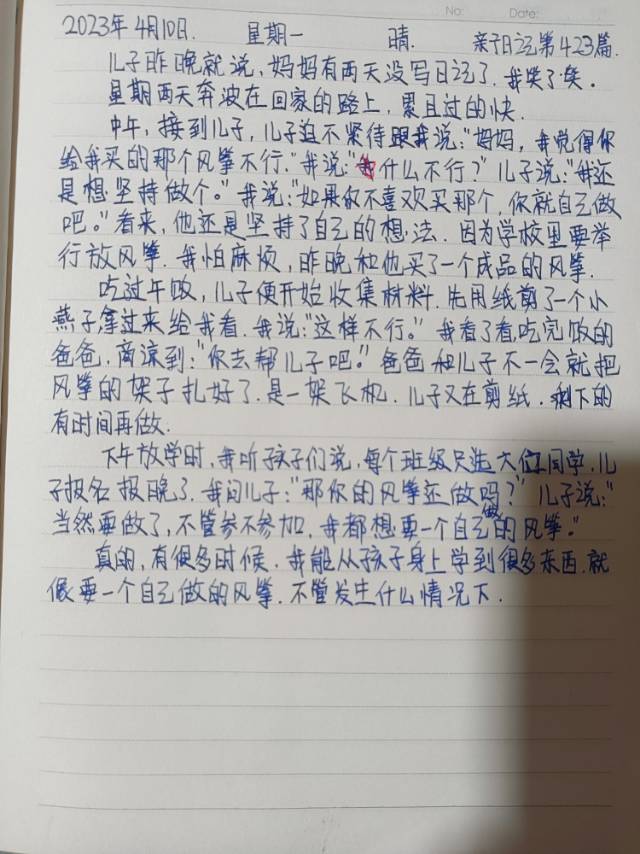 No: Date:
2023年4月10日. 星期一 晴. 亲子日记第423篇.
儿子昨晚就说,妈妈有两天没写日记了.我笑了笑.
星期两天奔波在回家的路上,累且过的快.
中午,接到儿子,儿子迫不紧待跟我说:"妈妈,我觉得你
给我买的那个风筝不行."我说:"什么不行?"儿子说:"我还
是想坚持做个。"我说:"如果你不喜欢买那个,你就自己做
吧。"看来,他还是坚持了自己的想法.因为学校里要举
行放风筝.我怕麻烦,昨晚和他买了一个成品的风筝.
吃过午饭,儿子便开始收集材料.先用纸剪了一个小
燕子,拿过来给我看.我说:"这样不行。"我看了看,吃完饭的
爸爸.商谅到:"你去帮儿子吧."爸爸和儿子不一会就把
风筝的架子扎好了.是一架飞机.儿子又在剪纸.剩下的
有时间再做.
下午放学时,我听孩子们说,每个班级只选六位同学,儿
子报名报晚了.我问儿子:"那你的风筝还做吗?"儿子说:"
当然要做了,不管参不参加,我都想要一个自己做的风筝。"
真的,有很多时候.我能从孩子身上学到很多东西.就
像要一个自己做的风筝.不管发生什么情况下.